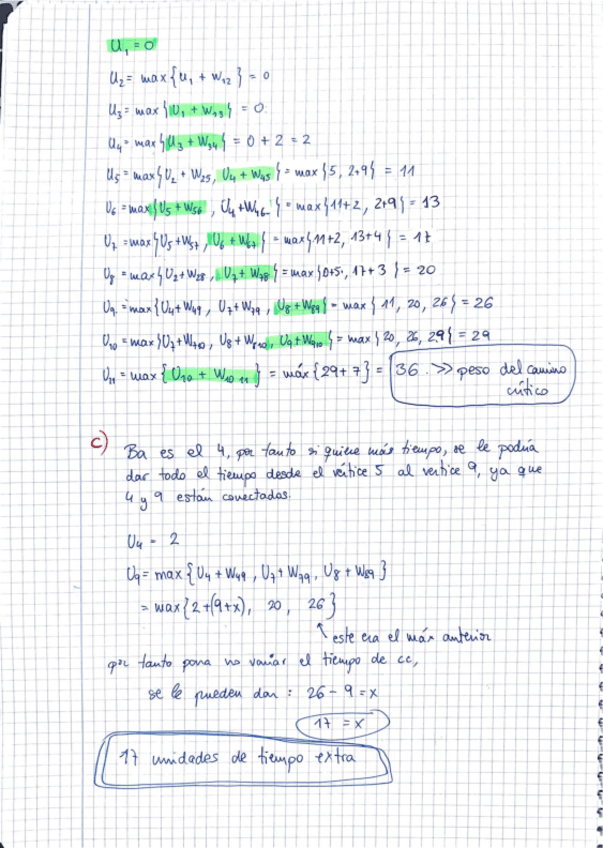 U₁ = 0
U₂ = max{u₁ + w₁₂} = 0
U₃ = max{U₁ + W₁₃} = 0
U₄ = max{U₃ + W₃₄} = 0 + 2 = 2
U₅ = max{U₂ + W₂₅, U₄ + W₄₅} = max{5, 2+9} = 11
U₆ = max{U₅ + W₅₆, U₄ + W₄₆} = max{11+2, 2+9} = 13
U₇ = max{U₅ + W₅₇, U₆ + W₆₇} = max{11+2, 13+4} = 17
U₈ = max{U₂ + W₂₈, U₇ + W₇₈} = max{0+5, 17+3} = 20
U₉ = max{U₄ + W₄₉, U₇ + W₇₉, U₈ + W₈₉} = max{11, 20, 26} = 26
U₁₀ = max{U₇ + W₇₁₀, U₈ + W₈₁₀, U₉ + W₉₁₀} = max{20, 26, 29} = 29
U₁₁ = max{U₁₀ + W₁₀ ₁₁} = máx{29+7} = 36 >> peso del camino
crítico
c) Ba es el 4, por tanto si quiere más tiempo, se le podría
dar todo el tiempo desde el vértice 5 al vertice 9, ya que
4 y 9 están conectados.
U₄ = 2
U₉ = max{U₄ + W₄₉, U₇ + W₇₉, U₈ + W₈₉}
= max{2+(9+x), 20, 26}
este era el máx anterior
por tanto para no variar el tiempo de cc,
se le pueden dar : 26 - 9 = x
17 = x
17 unidades de tiempo extra